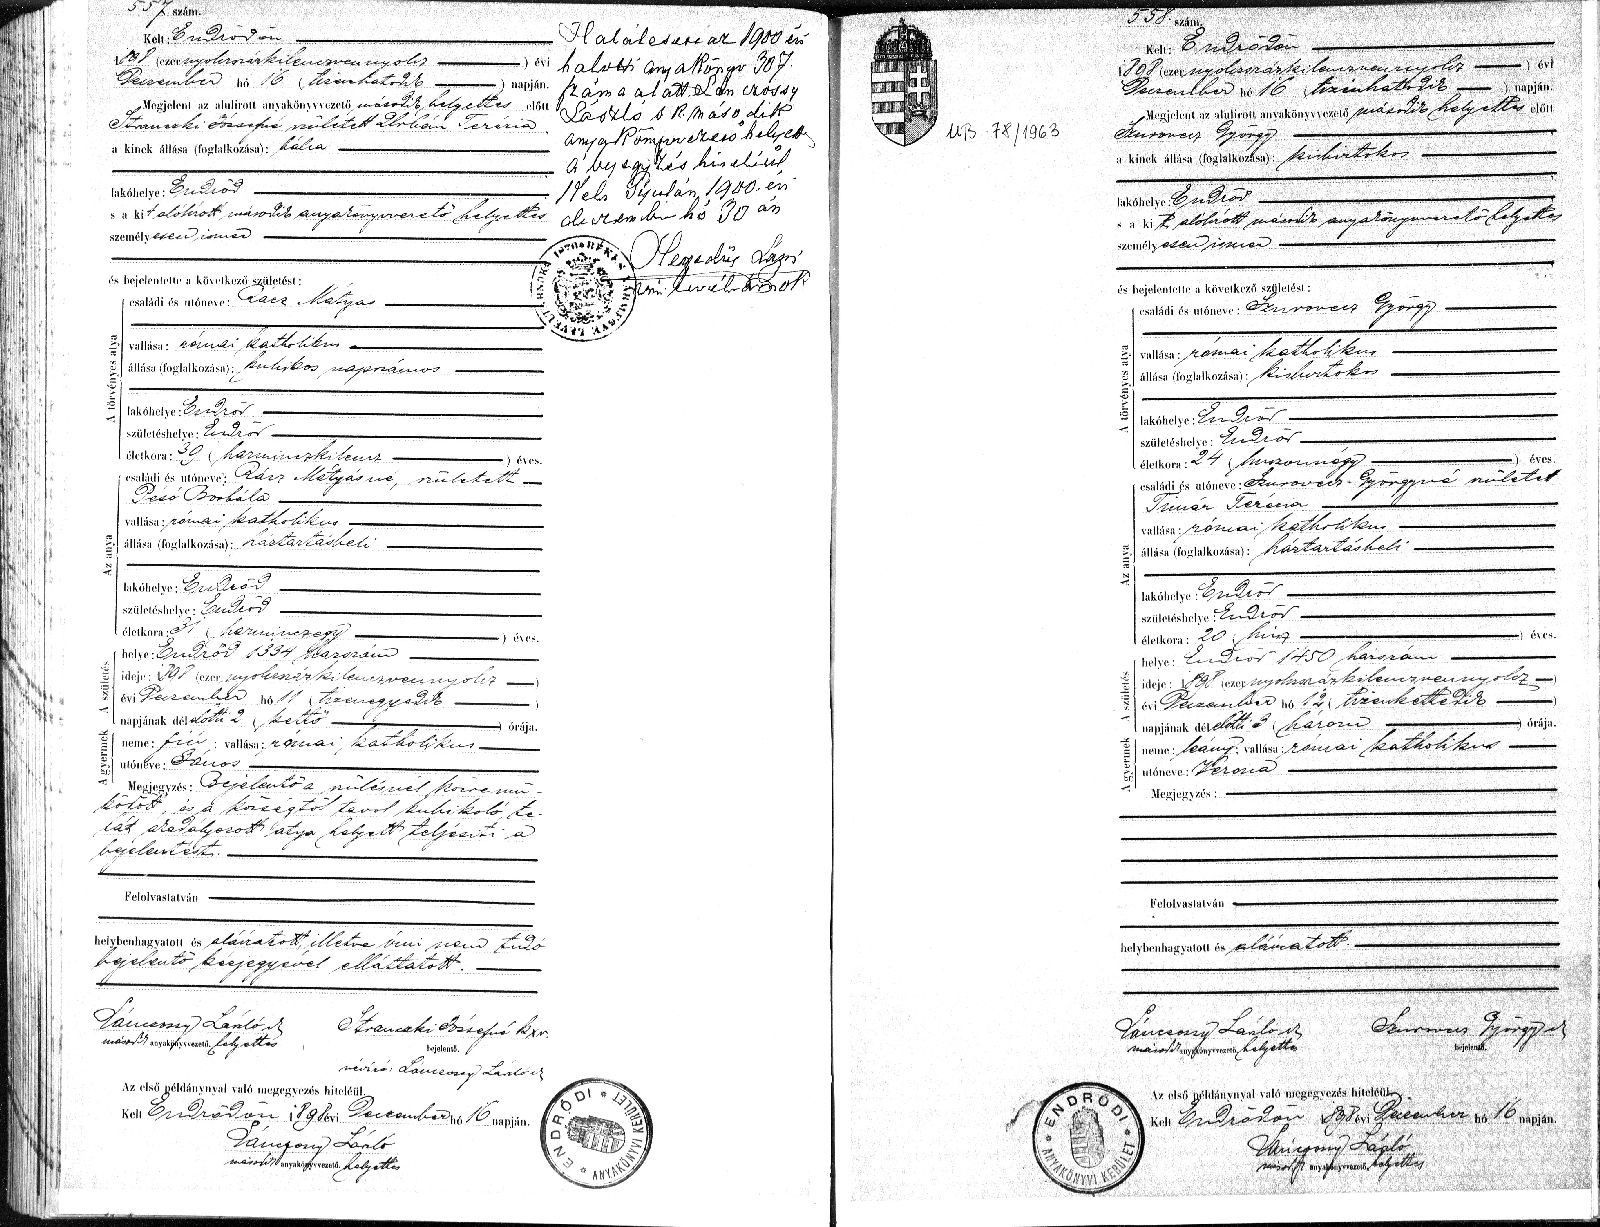 557 szám.
Kelt: Endrődön
1898 (ezernyolcszázkilenczvennyolcz ) évi
Deczember hó 16 (tizenhatodik ) napján.
Megjelent az alulirott anyakönyvvezető második helyettes előtt
Józsefné született Teréz
a kinek állása (foglalkozása): bába
lakóhelye: Endrőd
s a kit alólirott második anyakönyvvezető helyettes
személyesen ismer
és bejelentette a következő születést:
A törvényes atya
családi és utóneve: Rácz Mátyás
vallása: római katholikus
állása (foglalkozása): kubikos napszámos
lakóhelye: Endrőd
születéshelye: Endrőd
életkora: 39 (harminczkilencz ) éves.
Az anya
családi és utóneve: Rácz Mátyásné, született
Borbála
vallása: római katholikus
állása (foglalkozása): háztartásbeli
lakóhelye: Endrőd
születéshelye: Endrőd
életkora: 31 (harminczegy ) éves.
A születés
helye: Endrőd 1334 házszám
ideje: 1898 (ezernyolcszázkilenczvennyolcz )
évi Deczember hó 11 (tizenegyedik )
napjának délelőtti 2 (kettő ) órája.
A gyermek
neme: fiú; vallása: római katholikus
utóneve: János
Megjegyzés: Bejelentő a szülésnél közremű-
ködött, és a községtől távol kubikoló, te-
hát akadályozott atya helyett teljesíti a
bejelentést.
Felolvastatván
helybenhagyatott és aláiratott, illetve írni nem tudó
bejelentő kézjegyével elláttatott.
Lánczossy László sk
második anyakönyvvezető helyettes
Józsefné
bejelentő.
névíró: Lánczossy László sk
Az első példánynyal való megegyezés hiteléül.
Kelt Endrődön 1898 évi Deczember hó 16 napján.
Lánczossy László
második anyakönyvvezető helyettes
ENDRŐDI * ANYAKÖNYVI KERÜLET *
Halálesete az 1900 évi
halotti anyakönyv 307.
száma alatt Lánczossy
László s k. második
anyakönyvvezető helyett.
A bejegyzés hiteléül
Kelt Gyulán, 1900. évi
deczember hó 30 án
BÉKÉS VÁRMEGYE LEVÉLTÁRNOKA 1876
558. szám.
Kelt: Endrődön
1898 (ezernyolcszázkilenczvennyolcz ) évi
Deczember hó 16 (tizenhatodik ) napján.
Megjelent az alulirott anyakönyvvezető második helyettes előtt
Szurovecz György
a kinek állása (foglalkozása): kisbirtokos
lakóhelye: Endrőd
s a kit alólirott második anyakönyvvezető helyettes
személyesen ismer
és bejelentette a következő születést:
A törvényes atya
családi és utóneve: Szurovecz György
vallása: római katholikus
állása (foglalkozása): kisbirtokos
lakóhelye: Endrőd
születéshelye: Endrőd
életkora: 24 (huszonnégy ) éves.
Az anya
családi és utóneve: Szurovecz Györgyné született
Timár Terézia
vallása: római katholikus
állása (foglalkozása): háztartásbeli
lakóhelye: Endrőd
születéshelye: Endrőd
életkora: 20 (húsz ) éves.
A születés
helye: Endrőd 1450 házszám
ideje: 1898 (ezernyolcszázkilenczvennyolcz )
évi Deczember hó 12 (tizenkettedik )
napjának délelőtti 3 (három ) órája.
A gyermek
neme: leány; vallása: római katholikus
utóneve: Verona
Megjegyzés:
Felolvastatván
helybenhagyatott és aláiratott.
Lánczossy László sk
második anyakönyvvezető helyettes
Szurovecz György sk
bejelentő.
Az első példánynyal való megegyezés hiteléül.
Kelt Endrődön 1898 évi Deczember hó 16 napján.
Lánczossy László
második anyakönyvvezető helyettes
* ENDRŐDI * ANYAKÖNYVI KERÜLET
MB 78/1963